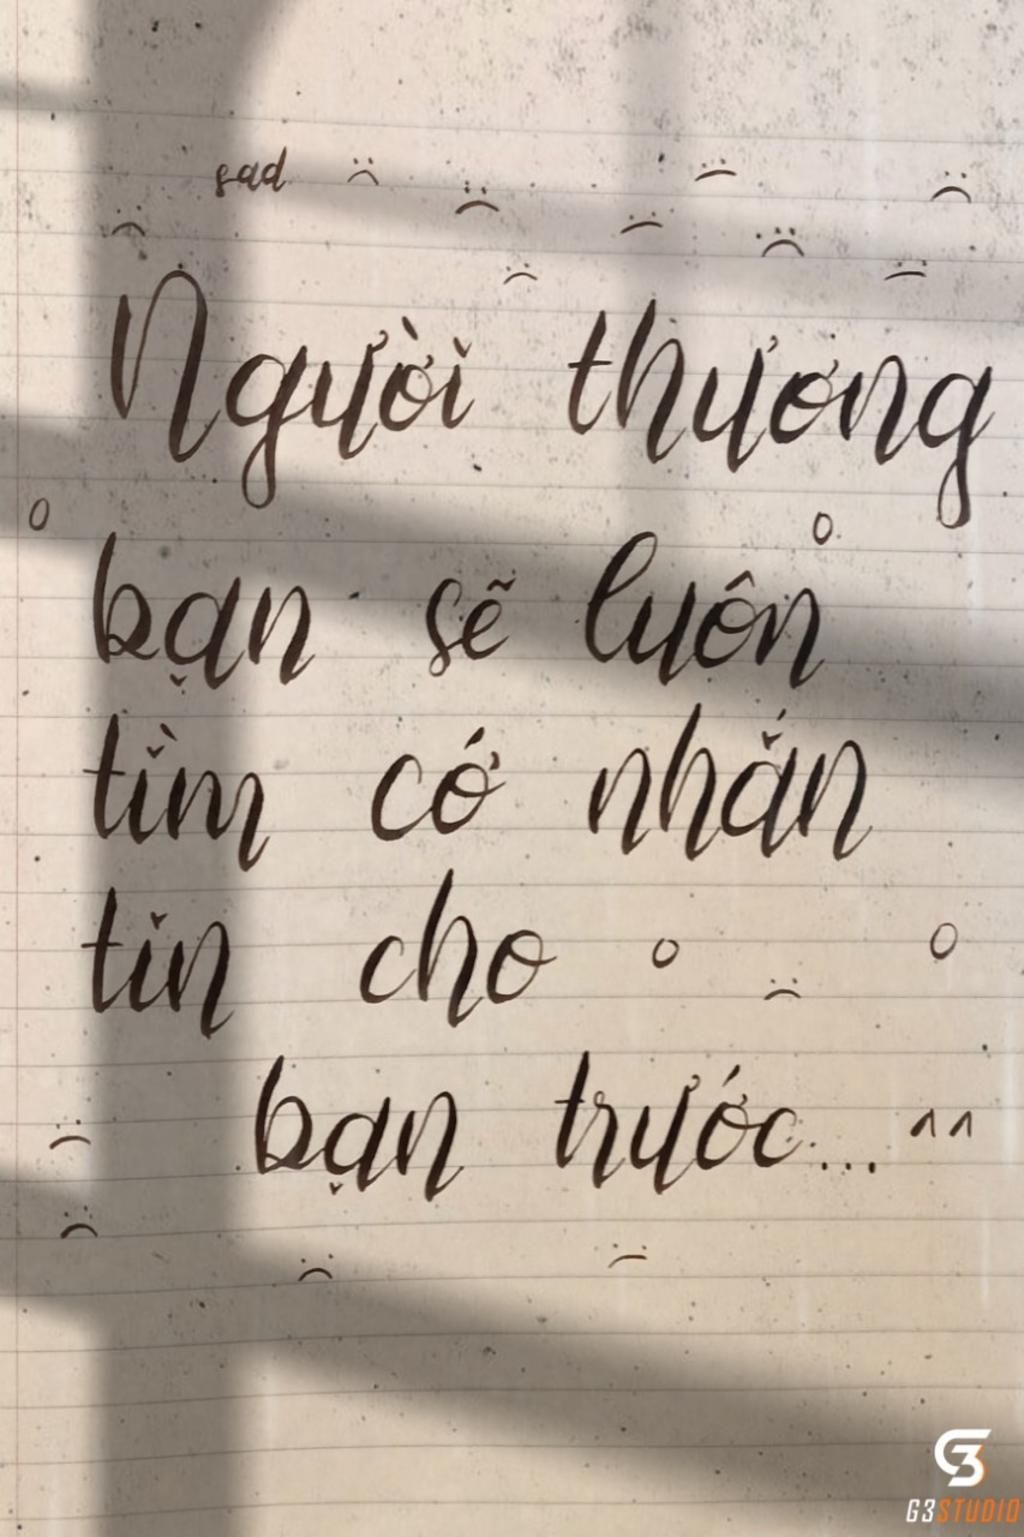 sad
Người thương
bạn sẽ luôn
tìm cớ nhắn
tin cho
bạn trước... ^^
G3STUDIO